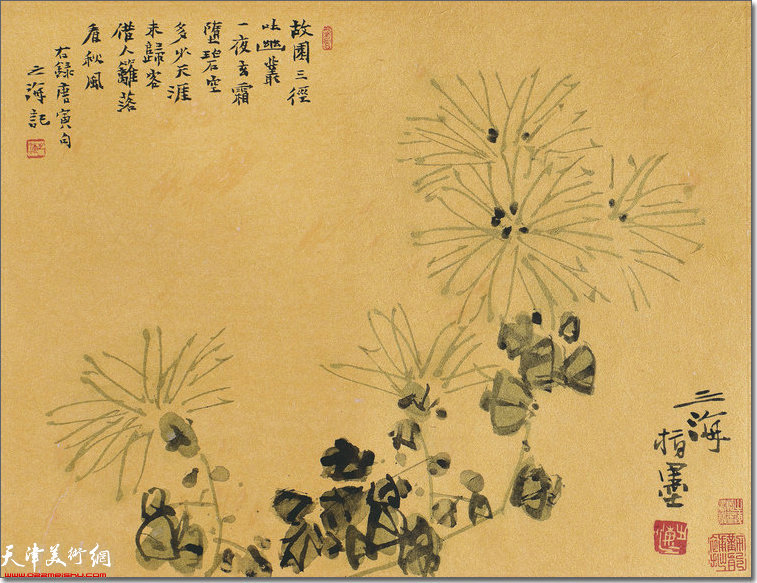 故園三徑
吐幽叢
一夜玄霜
墮碧空
多少天涯
未歸客
借人籬落
看秋風
右録唐寅句
之海記
之海
指墨
天津美術網
www.022meishu.com